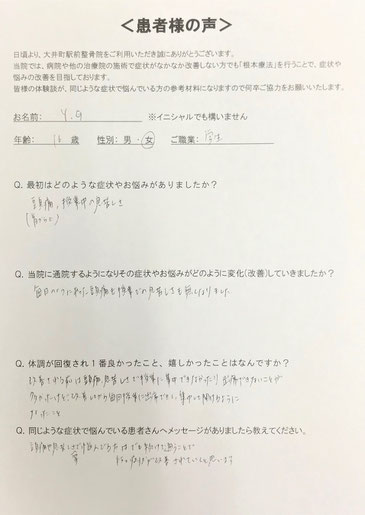 ＜患者様の声＞
日頃より、大井町駅前整骨院をご利用いただき誠にありがとうございます。
当院では、病院や他の治療院の施術で症状がなかなか改善しない方でも「根本療法」を行うことで、症状や
悩みの改善を目指しております。
皆様の体験談が、同じような症状で悩んでいる方の参考材料になりますので何卒ご協力をお願いいたします。
お名前： Y.G ※イニシャルでも構いません
年齢： 歳 性別：男・女 ご職業：学生
Q. 最初はどのような症状やお悩みがありましたか？
頭痛、授業中の息苦しさ
Q. 当院に通院するようになりその症状やお悩みがどのように変化(改善)していきましたか？
毎日のようにあった頭痛も授業での息苦しさも無くなりました
Q. 体調が回復され１番良かったこと、嬉しかったことはなんですか？
改善する前は頭痛、息苦しさで授業に集中できなかったり出席できないことが
多かったけど改善してから毎回授業に出席でき、集中して聞けるように
なったこと
Q. 同じような症状で悩んでいる患者さんへメッセージがありましたら教えてください。
頭痛や息苦しさで悩んでる方は 通うことで
症状が改善 と思います